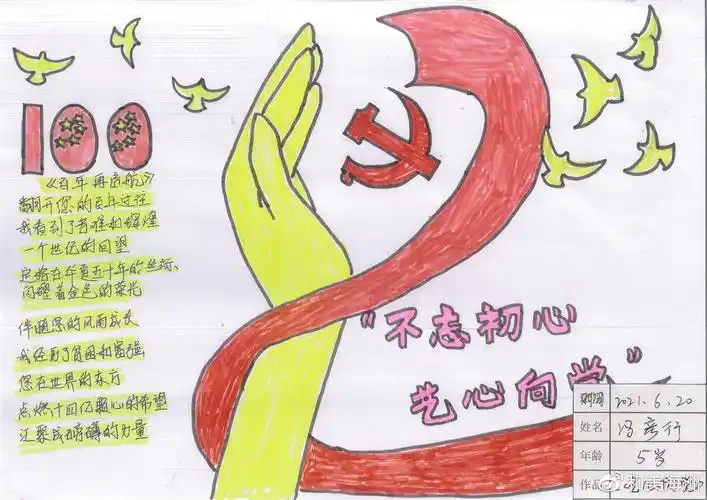 100
《百年再启航》
翻开您的百年过往
我看到了苦难和辉煌
一个世纪的回望
定格在华夏五千年的坐标、
闪耀着金色的荣光
伴随您的风雨成长
我经历了贫困和富强
您在世界的东方
点燃十四亿颗心的希望
让聚成磅礴的力量
"不忘初心
艺心向党"
时间 2021.6.20
姓名 行
年龄 5岁
作品